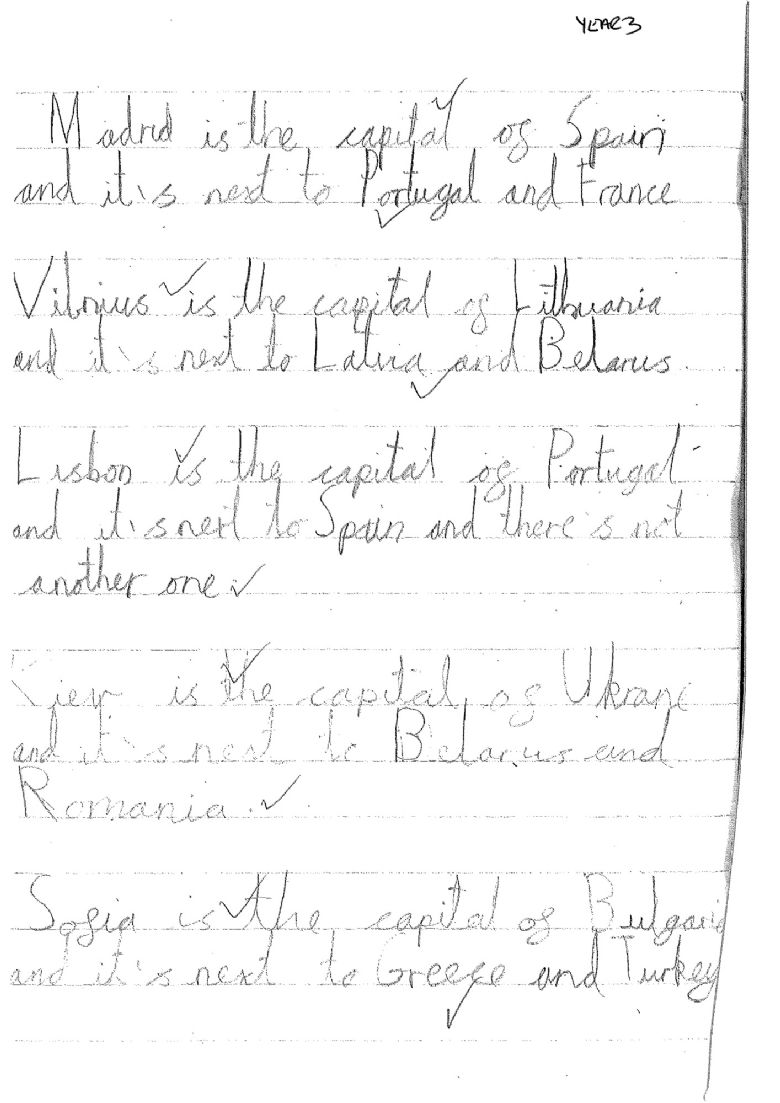 YEAR 3
Madrid is the capital of Spain
and it's next to Portugal and France
Vilnius is the capital of Lithuania
and it's next to Latvia and Belarus.
Lisbon is the capital of Portugal
and it's next to Spain and there's not
another one.
Kiev is the capital of Ukrane
and it's next to Belarus and
Romania.
Sofia is the capital of Bulgaria
and it's next to Greece and Turkey